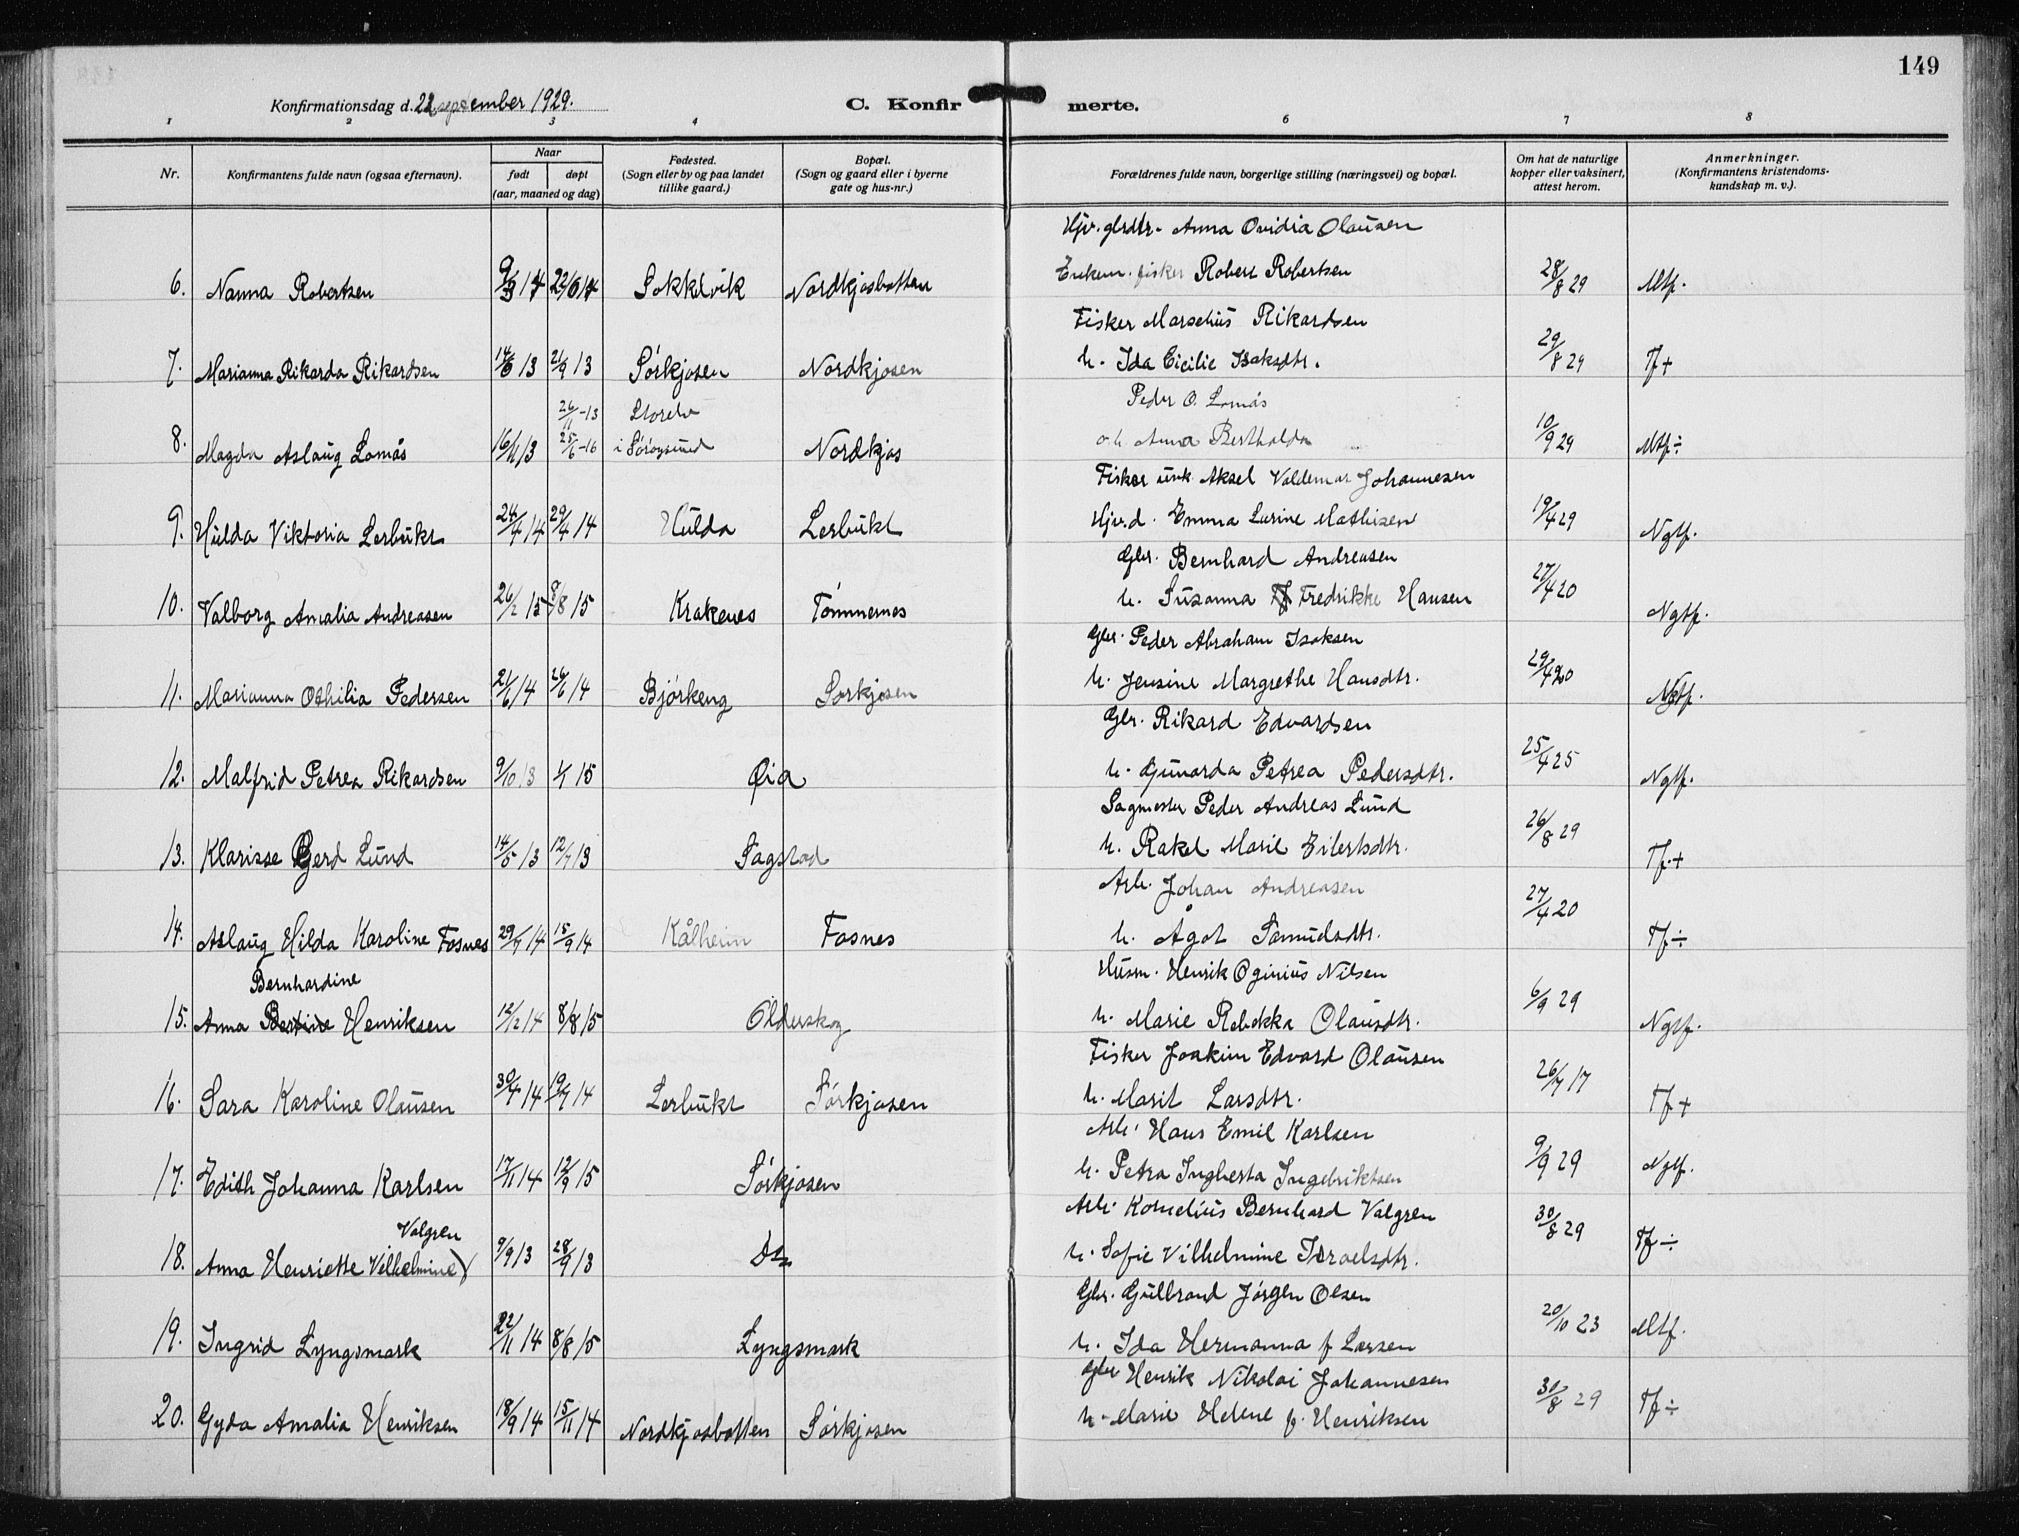 149
Konfirmationsdag d. 22 september 1929. C. Konfirmerte.
1 2 3 4 6 7 8
Nr. Konfirmantens fulde navn (ogsaa efternavn). Naar født døpt (aar, maaned og dag) Fødested. (Sogn eller by og paa landet tillike gaard.) Bopæl. (Sogn og gaard eller i byerne gate og hus-nr.) Forældrenes fulde navn, borgerlige stilling (næringsvei) og bopæl. Om hat de naturlige kopper eller vaksinert, attest herom. Anmerkninger. (Konfirmantens kristendoms-kundskap m. v.).
Hjv. grdtr. Anna Ovidia Olausen
6. Nanna Robertsen Sokkelvik Nordkjosbotten Enkem. fisker Robert Robertsen 28/8 29 Mtf.
Fisker Marselius Rikardsen
7. Marianna Rikarda Rikardsen 14/6 13 21/9 13 Sørkjosen Nordkjosen h. Ida Cicilie Isaksdtr. 29/8 29 Tf +
26/11-13 Storelv Peder O. Lomås
8. Magda Aslaug Lomås 16/11 13 25/6-16 i Sørøysund Nordkjos o.h. Anna Bertholda 10/9 29 Mtf ÷
Fisker unk. Aksel Valdemar Johannesen
9. Hulda Viktoria Lerbukt 24/4 14 29/4 14 Hulda Lerbukt Hjv.d. Emma Lusine Mathisen 19/4 29 Ngtf.
Gbr. Bernhard Andreasen
10. Valborg Amalia Andreasen 26/2 15 8/8 15 Krakenes Tømmernes h. Susanna Fredrikke Hansen 27/4 20 Ngtf.
Gbr. Peder Abraham Isaksen
11. Marianna Othilia Pedersen 21/6 14 26/6 14 Bjørkeng Sørkjosen h. Jensine Margrethe Hansdtr. 29/4 20 Ngtf.
Gbr. Rikard Edvardsen
12. Malfrid Petrea Rikardsen 9/10 13 1/1 15 Øia h. Gunarda Petrea Pedersdtr. 25/4 25 Ngtf.
Sagmester Peder Andreas Lund
13. Klarisse Gerd Lund 14/5 13 12/7 13 Sagstad h. Rakel Marie Eilertsdtr. 26/8 29 Tf. +
Arb. Johan Andreasen
14. Aslaug Hilda Karoline Fosnes 29/7 14 15/9 14 Kålheim Fosnes h. Ågot Samuelsdtr. 27/4 20 Tf ÷
Bernhardine Husm. Henrik Oginius Nilsen
15. Anna Bertine Henriksen 12/2 14 8/8 15 Olderskog h. Marie Rebekka Olausdtr. 6/9 29 Ngtf.
Fisker Joakim Edvard Olausen
16. Sara Karoline Olausen 30/4 14 19/7 14 Lerbukt Sørkjosen h. Marit Larsdtr. 26/7 17 Tf +
Arb. Hans Emil Karlsen
17. Edith Johanna Karlsen 17/11 14 12/9 15 Sørkjosen h. Petra Ingberta Ingebriktsen 9/9 29 Ngtf.
Valgren Arb. Kornelius Bernhard Valgren
18. Anna Henriette Vilhelmine 9/9 13 28/9 13 Do h. Sofie Vilhelmine Israelsdtr. 30/8 29 Tf ÷
Gbr. Gulbrand Jørgen Olsen
19. Ingrid Lyngsmark 22/11 14 8/8 15 Lyngsmark h. Ida Hermanna f. Larsen 20/10 23 Mtf.
Gbr Henrik Nikolai Johannesen
20. Gyda Amalia Henriksen 18/9 14 15/11 14 Nordkjosbotten Sørkjosen h. Marie Helene f. Henriksen 30/8 29 Tf ÷